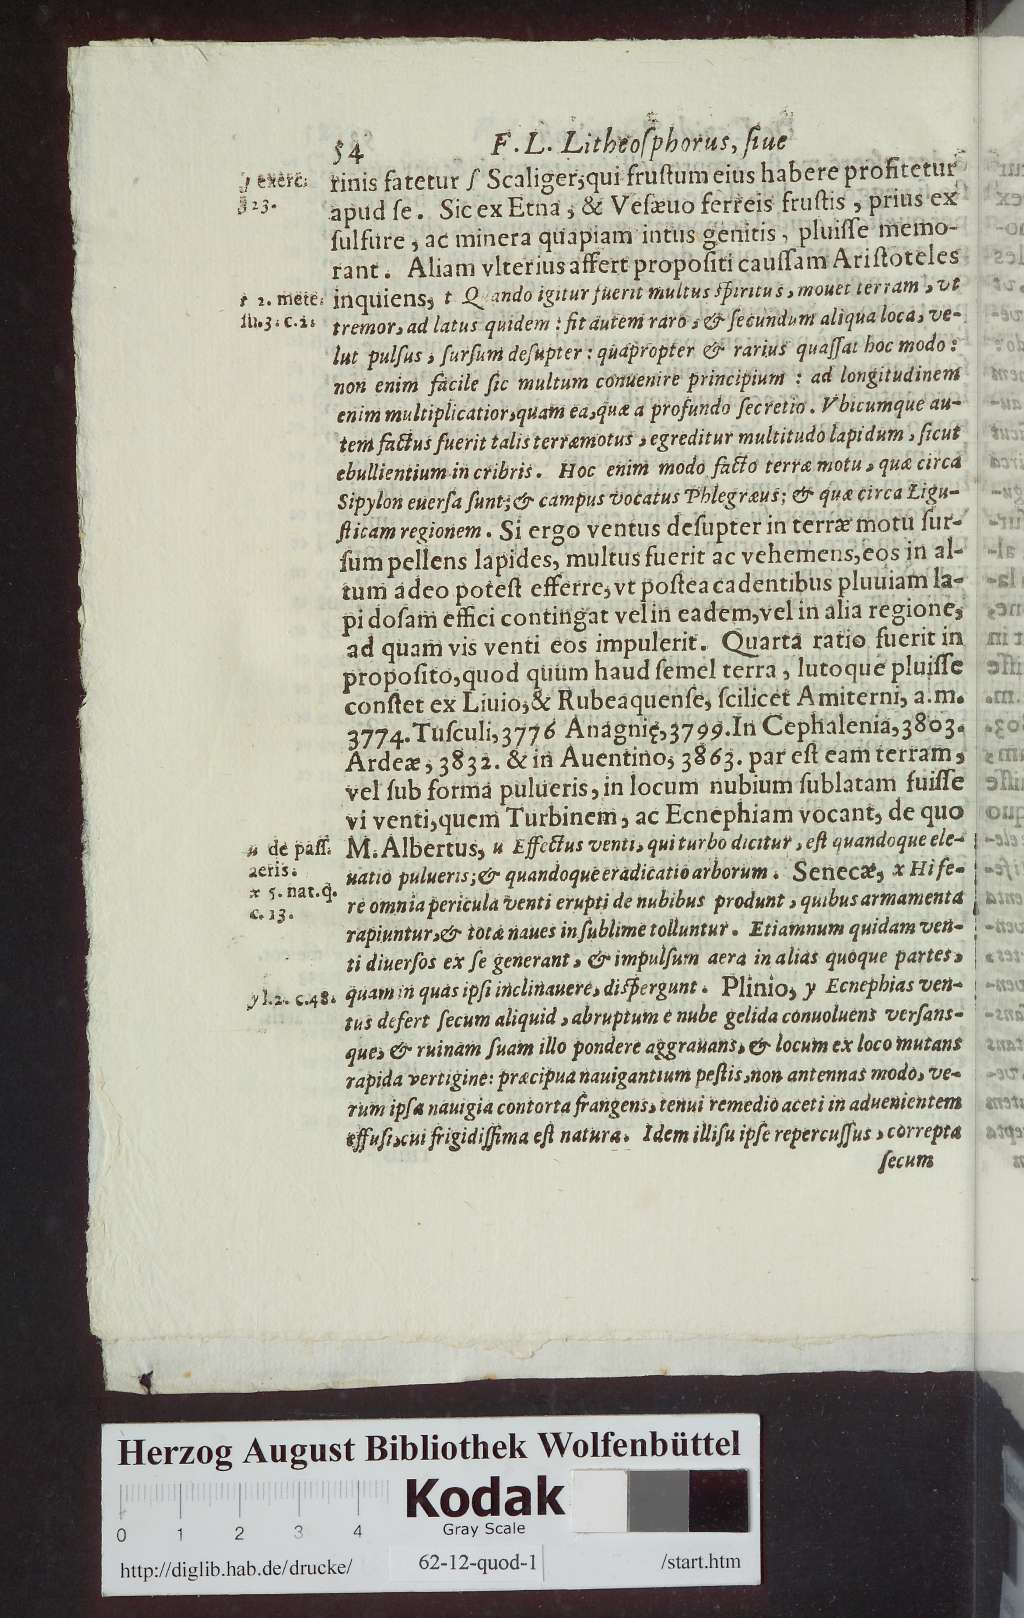 54 F. L. Litheoſphorus, ſiue
ſ exerc.
323.
rinis fatetur ſ Scaliger, qui fruſtum eius habere profitetur
apud ſe. Sic ex Etna, & Veſæuo ferreis fruſtis, prius ex
ſulfure, ac minera quapiam intus genitis, pluiſſe memo-
rant. Aliam vlterius affert propoſiti cauſſam Ariſtoteles
t 2. mete.
ſu. 3. c. 2.
inquiens, t Quando igitur fuerit multus ſpiritus, mouet terram, vt
tremor, ad latus quidem: fit autem raro, & ſecundum aliqua loca, ve-
lut pulſus, ſurſum deſupter: quapropter & rarius quaſſat hoc modo:
non enim facile ſic multum conuenire principium: ad longitudinem
enim multiplicatior, quam ea, quæ a profundo ſecretio. Vbicumque au-
tem factus fuerit talis terræmotus, egreditur multitudo lapidum, ſicut
ebullientium in cribris. Hoc enim modo facto terræ motu, quæ circa
Sipylon euerſa ſunt; & campus vocatus Phlegræus; & quæ circa Ligu-
ſticam regionem. Si ergo ventus deſupter in terræ motu ſur-
ſum pellens lapides, multus fuerit ac vehemens, eos in al-
tum adeo poteſt efferre, vt poſtea cadentibus pluuiam la-
pidoſam effici contingat vel in eadem, vel in alia regione,
ad quam vis venti eos impulerit. Quarta ratio fuerit in
propoſito, quod quum haud ſemel terra, lutoque pluiſſe
conſtet ex Liuio, & Rubeaquenſe, ſcilicet Amiterni, a. m.
3774. Tuſculi, 3776 Anagnię, 3799. In Cephalenia, 3803.
Ardeæ, 3832. & in Auentino, 3863. par eſt eam terram,
vel ſub forma pulueris, in locum nubium ſublatam fuiſſe
vi venti, quem Turbinem, ac Ecnephiam vocant, de quo
u de paſſ.
aeris.
x 5. nat. q.
c. 13.
M. Albertus, u Effectus venti, qui turbo dicitur, eſt quandoque ele-
uatio pulueris; & quandoque eradicatio arborum. Senecæ, x Hi fe-
re omnia pericula venti erupti de nubibus produnt, quibus armamenta
rapiuntur, & totæ naues in ſublime tolluntur. Etiamnum quidam ven-
ti diuerſos ex ſe generant, & impulſum aera in alias quoque partes,
y l. 2. c. 48.
quam in quas ipſi inclinauere, diſpergunt. Plinio, y Ecnephias ven-
tus defert ſecum aliquid, abruptum e nube gelida conuoluens verſans-
que, & ruinam ſuam illo pondere aggrauans, & locum ex loco mutans
rapida vertigine: præcipua nauigantium peſtis, non antennas modo, ve-
rum ipſa nauigia contorta frangens, tenui remedio aceti in aduenientem
effuſi, cui frigidiſſima eſt natura. Idem illiſu ipſe repercuſſus, correpta
ſecum
Herzog August Bibliothek Wolfenbüttel
Kodak
Gray Scale
0 1 2 3 4
http://diglib.hab.de/drucke/ 62-12-quod-1 /start.htm